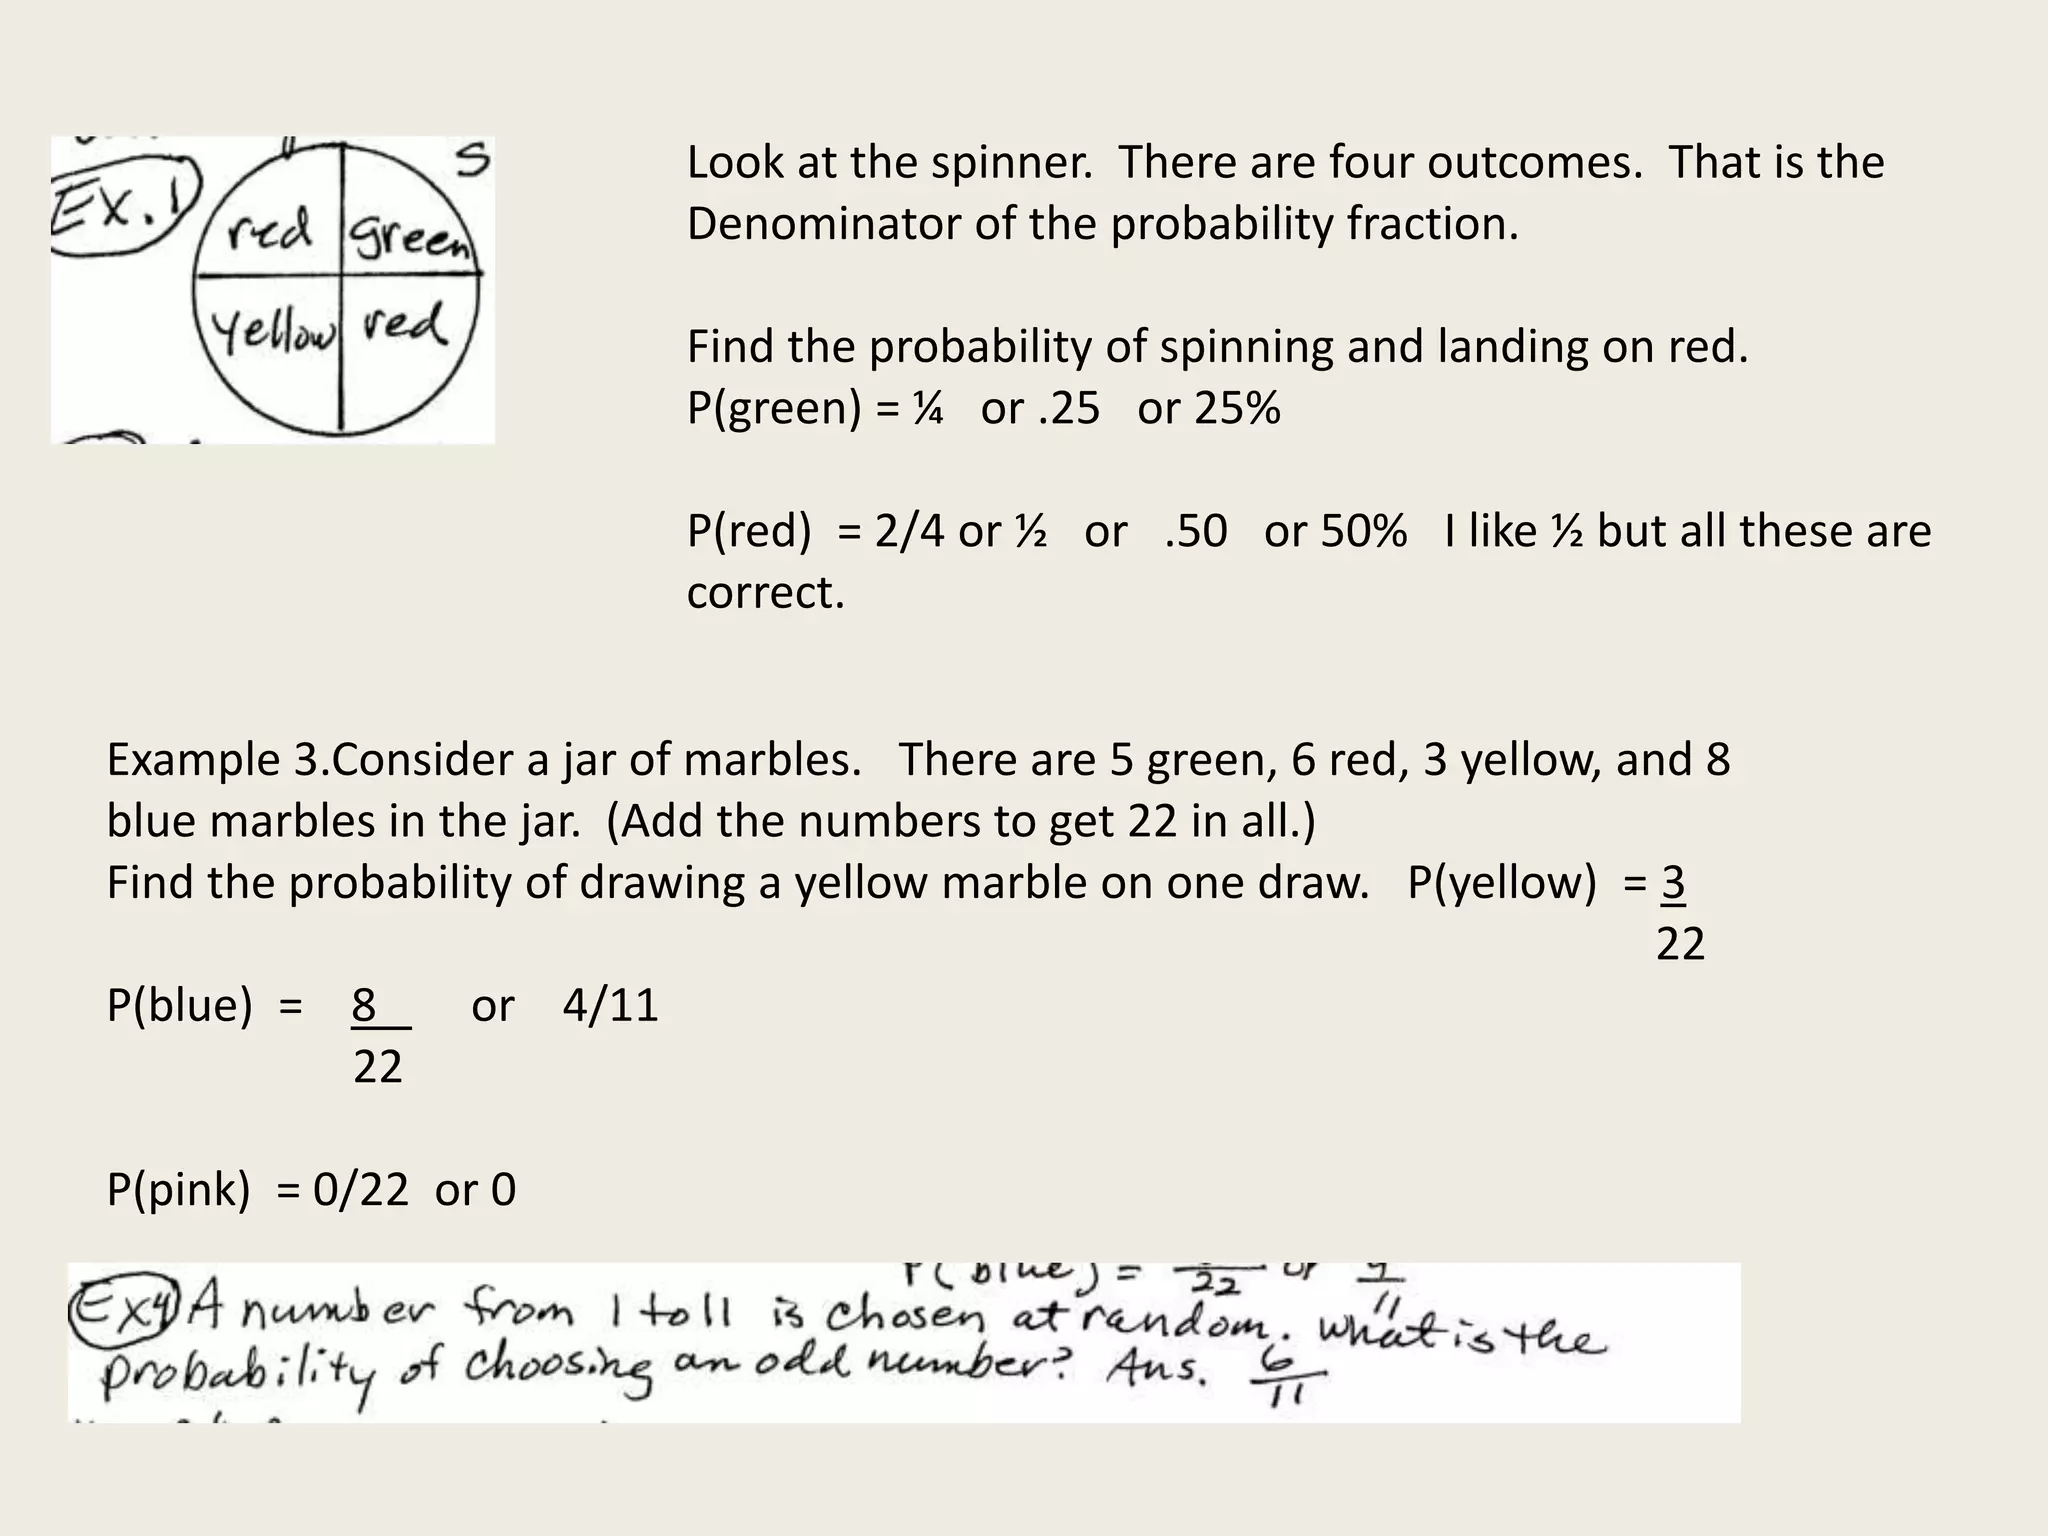 Ex. 1
S
red green
yellow red
Look at the spinner. There are four outcomes. That is the
Denominator of the probability fraction.
Find the probability of spinning and landing on red.
P(green) = ¼ or .25 or 25%
P(red) = 2/4 or ½ or .50 or 50% I like ½ but all these are
correct.
Example 3.Consider a jar of marbles. There are 5 green, 6 red, 3 yellow, and 8
blue marbles in the jar. (Add the numbers to get 22 in all.)
Find the probability of drawing a yellow marble on one draw. P(yellow) = 3
22
P(blue) = 8 or 4/11
22
P(pink) = 0/22 or 0
P(blue) = 22 or 11
Ex4 A number from 1 to 11 is chosen at random. What is the
probability of choosing an odd number? Ans. 6/11